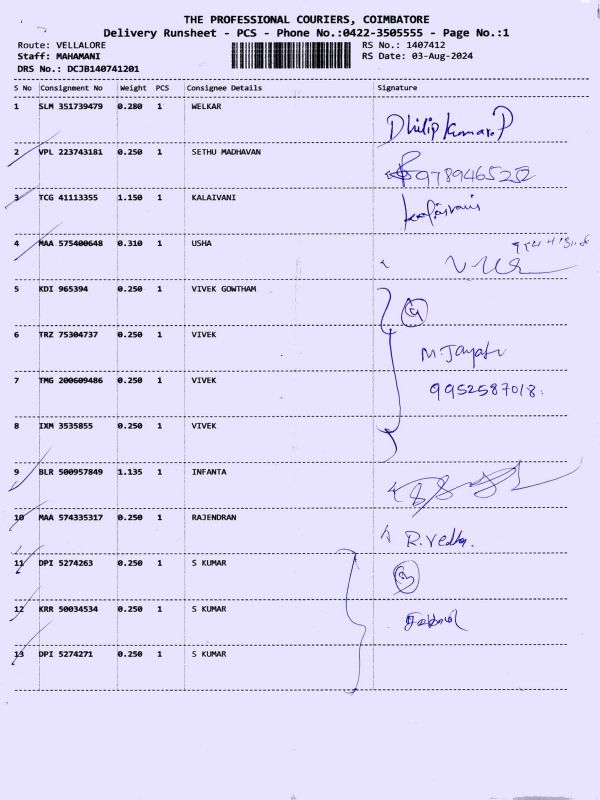 THE PROFESSIONAL COURIERS, COIMBATORE
Delivery Runsheet - PCS - Phone No.:0422-3505555 - Page No.:1
Route: VELLALORE RS No.: 1407412
Staff: MAHAMANI RS Date: 03-Aug-2024
DRS No.: DCJB140741201
S No Consignment No Weight PCS Consignee Details Signature
1 SLM 351739479 0.280 1 WELKAR
Dhilip Kumar.P
2 VPL 223743181 0.250 1 SETHU MADHAVAN
9789465252
3 TCG 41113355 1.150 1 KALAIVANI
4 MAA 575400648 0.310 1 USHA
5 KDI 965394 0.250 1 VIVEK GOWTHAM
4
6 TRZ 75304737 0.250 1 VIVEK
M. Jayah
7 TMG 200609486 0.250 1 VIVEK
9952587018.
8 IXM 3535855 0.250 1 VIVEK
9 BLR 500957849 1.135 1 INFANTA
10 MAA 574335317 0.250 1 RAJENDRAN
R. Vedha.
11 DPI 5274263 0.250 1 S KUMAR
3
12 KRR 50034534 0.250 1 S KUMAR
13 DPI 5274271 0.250 1 S KUMAR